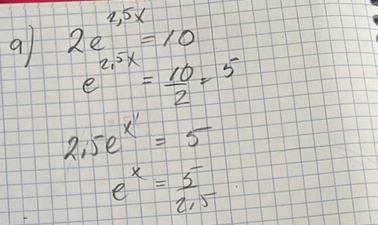 a) 2e^{2,5x} = 10
e^{2,5x} = 10/2 = 5
2,5e^{x'} = 5
e^{x} = 5/2,5